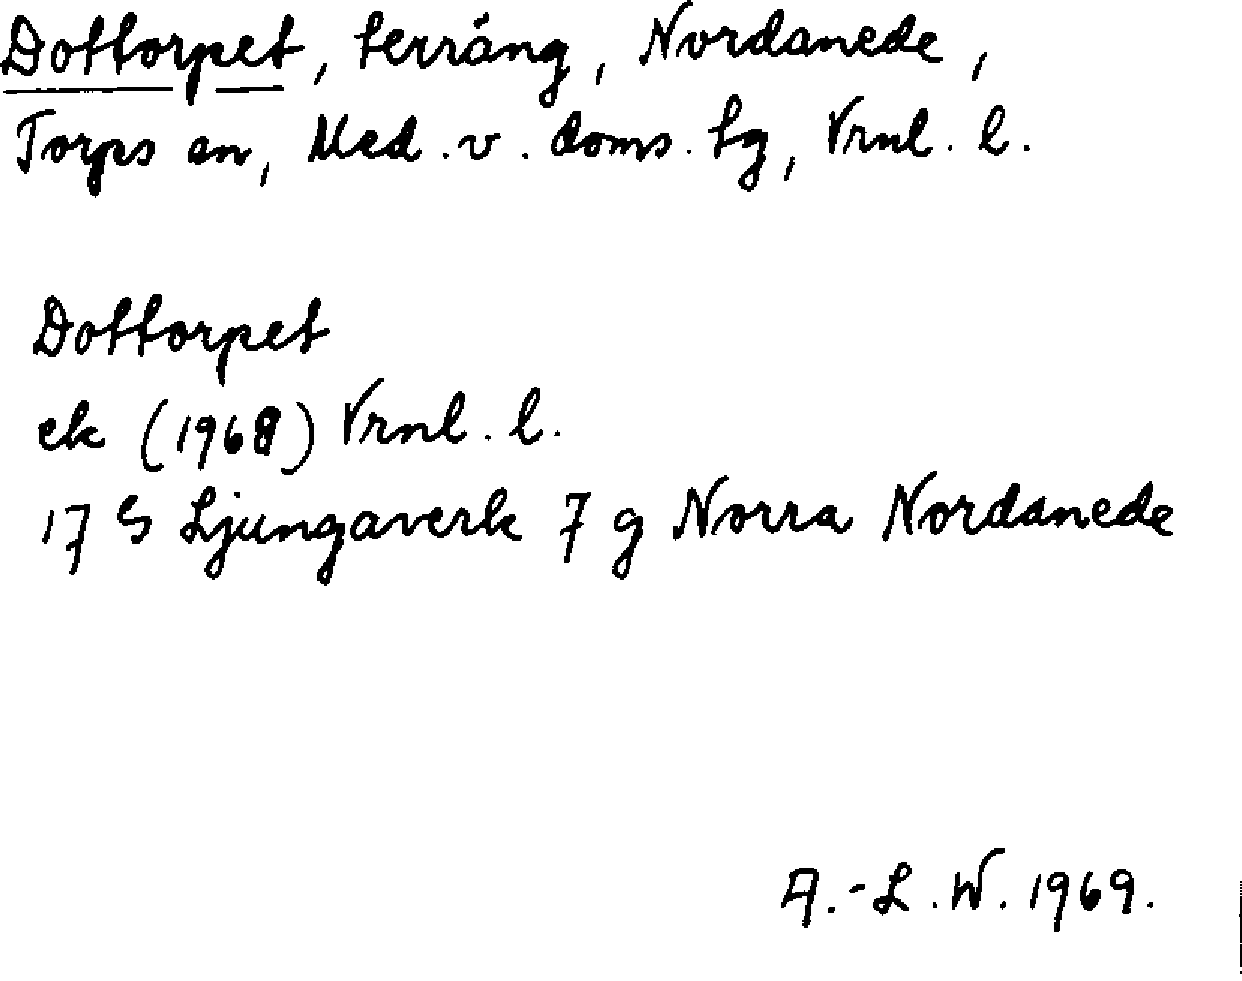 Dottorpet, terräng, Nordanede,
Torps sn, Med. v. doms. tg, Vrnl. l.
Dottorpet
ek (1968) Vrnl. l.
17 G Ljungaverk 7 g Norra Nordanede
A.-L. W. 1969.